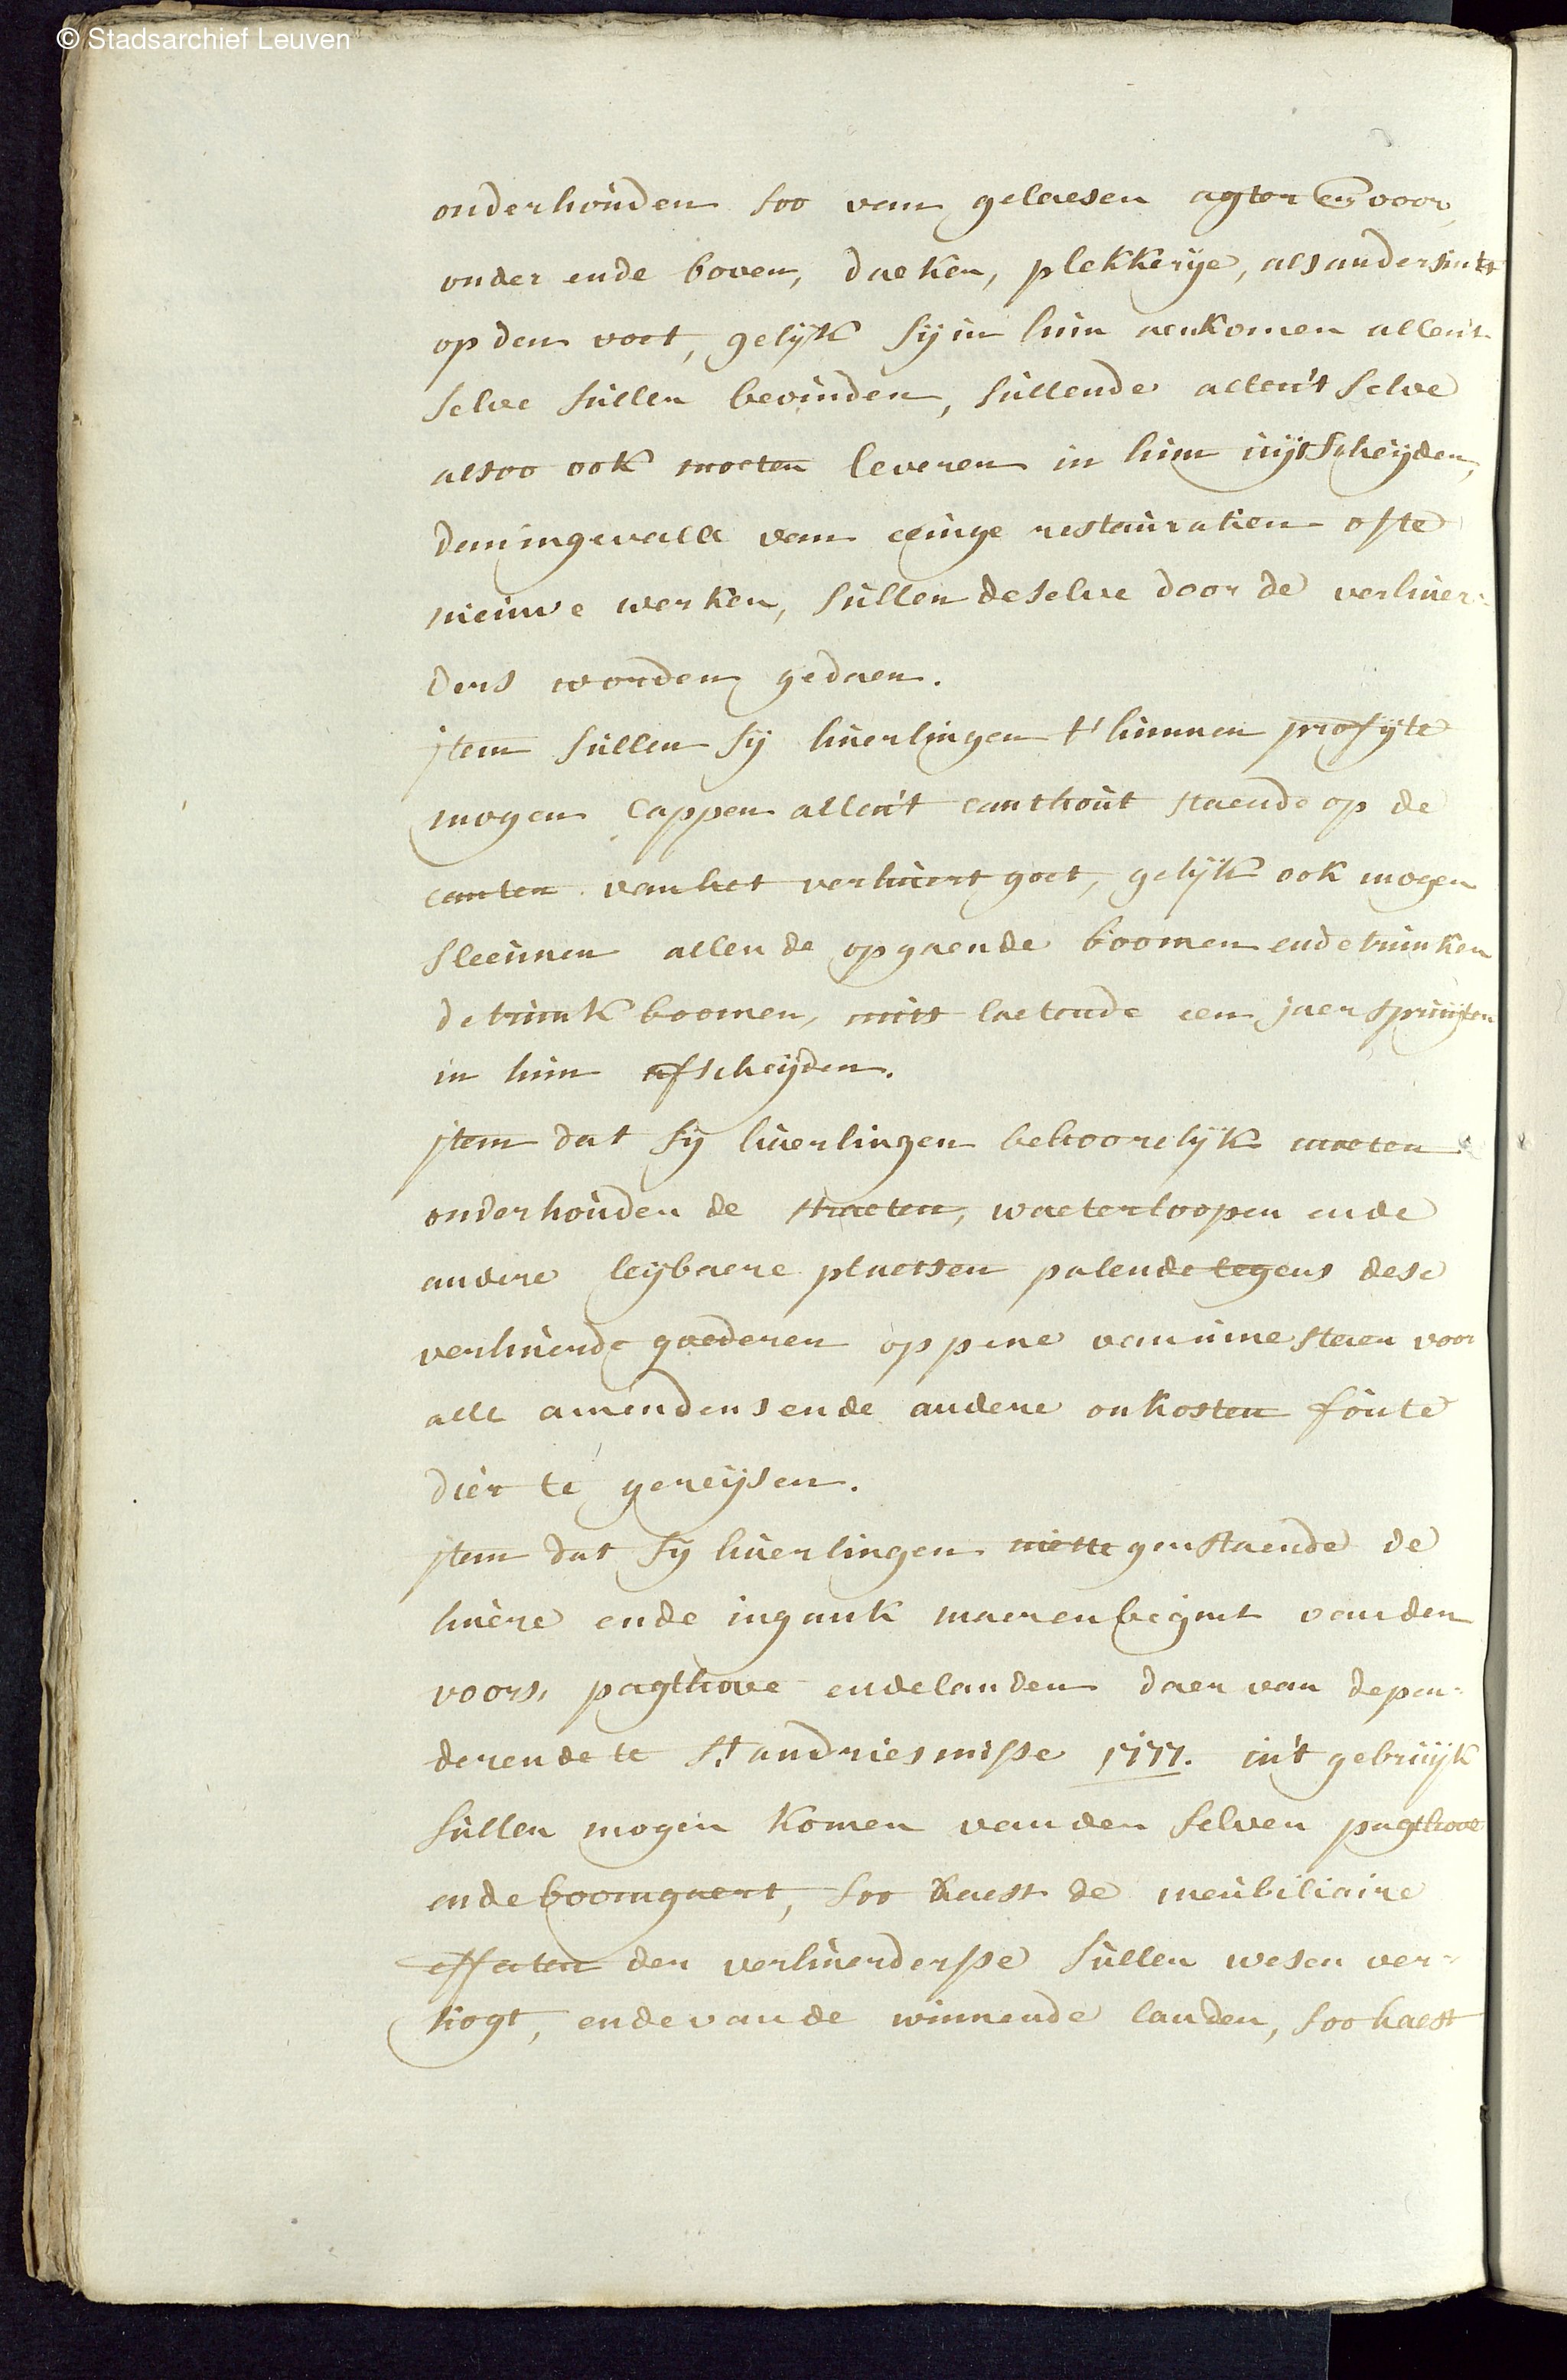 © Stadsarchief Leuven
onderhouden soo van gelaesen agter en voor,
onder ende boven, daeken, plekkerije, als andersints
op den voet, gelijk sij in hun aenkomen allen't
selve sullen bevinden, sullende allen't selve
alsoo ook moeten leveren in hun uijtscheijden,
dan ingevalle van eenige restauratien ofte
nieuwe werken, sullen deselve door de verhuer-
ders worden gedaen.
item sullen sij huerlingen t'hunnen profijte
mogen cappen allen't canthout staende op de
canten van het verhuert goet, gelijk ook mogen
sleunen allen de opgaende boomen ende trunken
de trunkboomen, mits laetende een jaer spruijten
in hun afscheijden.
item dat sij huerlingen behoorelijk moeten
onderhouden de straeten, waeterloopen ende
andere leijbaere plaetsen palende tegens dese
verhuerde goederen op pene van inne staen voor
alle amendens ende andere onkosten foute
dier te gereijsen.
item dat sij huerlingen niettegenstaende de
huere ende ingank maer en begint van den
voors. pagthove ende landen daer van depen-
derende te St andriesmisse 1777. in't gebruijk
sullen mogen komen van den selven pagthove
ende boomgaert, soo haest de meubiliaire
effecten der verhuerdersse sullen wesen ver-
kogt, ende van de winnende landen, soo haest